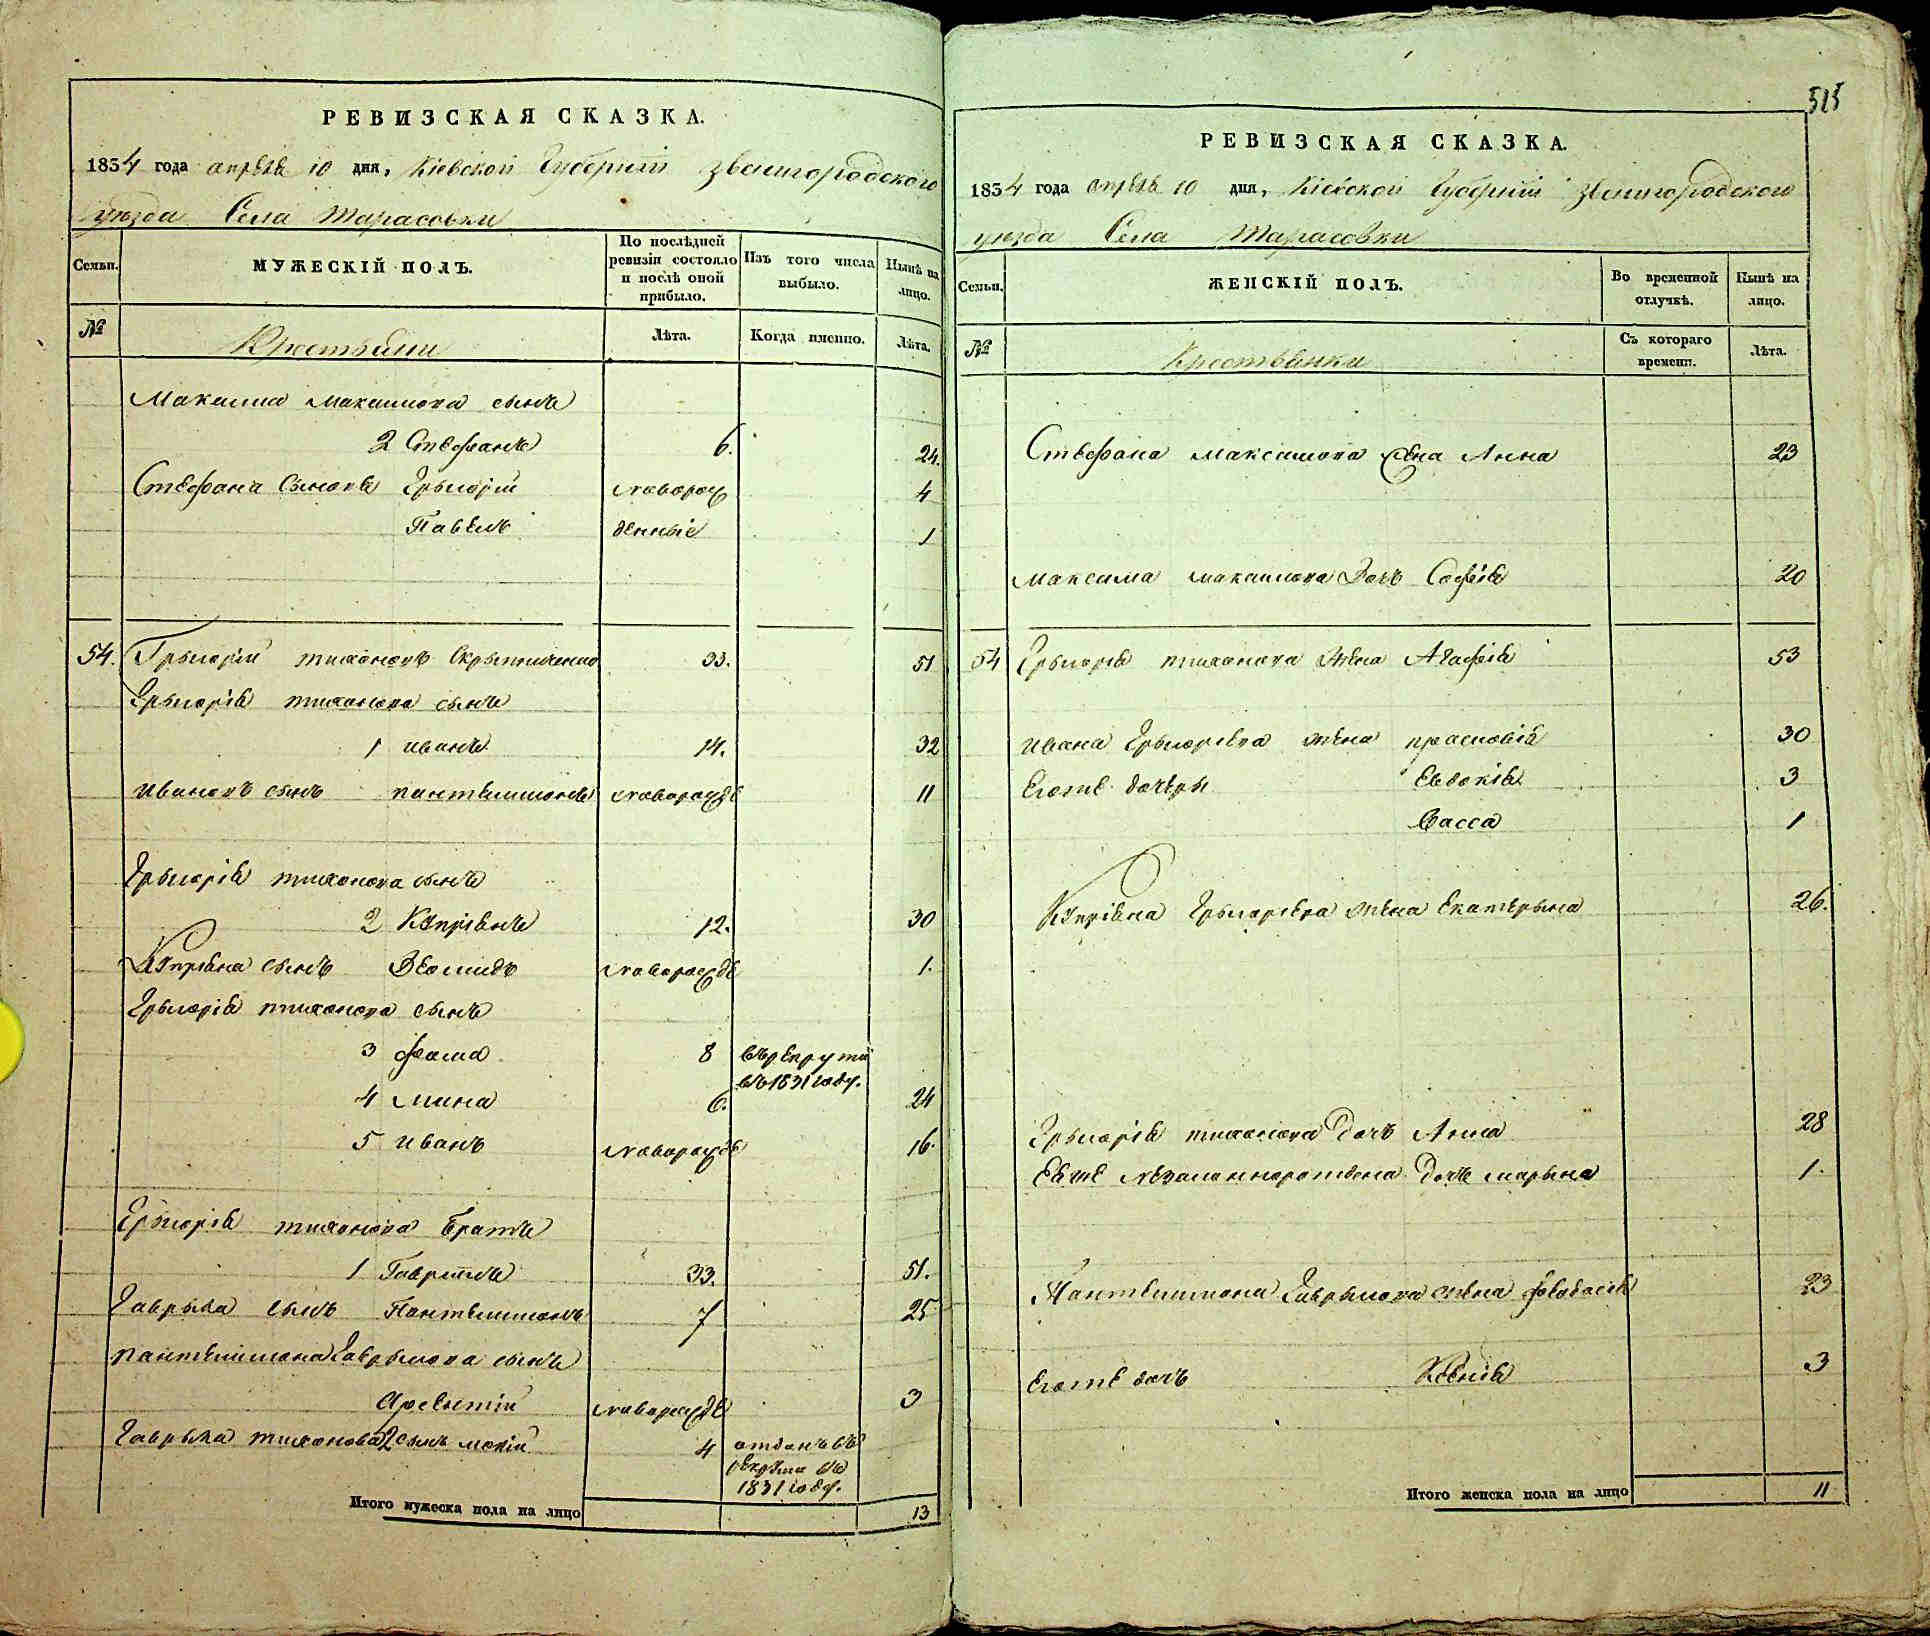 РЕВИЗСКАЯ СКАЗКА.
1834 года апреля 10 дня, Кіевской Губерніи Звенигородского
уезда Села Тарасовки
Семьи.
МУЖЕСКІЙ ПОЛЪ.
По послѣдней ревизіи состояло и послѣ оной прибыло.
Изъ того числа выбыло.
Нынѣ на лицо.
№
Крестьяни
Лѣта.
Когда именно.
Лѣта.
Максима Максимова сынъ
2 Стефанъ 6. 24.
Стефана сыновя Грыгорій новорож 4
Павелъ денныіе 1
54. Грыгорій Тихоновъ 33. 51
Грыгорія Тихонова сынъ
1 Иванъ 14. 32
Ивановъ сынъ Пантелимонъ новорожде 11
Грыгорія Тихонова сынъ
2 Купріянъ 12. 30
Купріяна сынъ новорожде 1.
Грыгорія Тихонова сынъ
3 Фома 8 въ рекруты
въ 1831 году.
4 Мина 6. 24
5 Иванъ новорожде 16.
Грыгорія Тихонова братъ
1 Гаврыилъ 33. 51.
Гаврыла сынъ Пантелимонъ 7 25
Пантелимона Гаврылова сынъ
новорожде 3
Гаврыла Тихонова 2 сынъ Мокій 4 отданъ въ
рекруты въ
1831 году.
Итого мужеска пола на лицо 13
515
РЕВИЗСКАЯ СКАЗКА.
1834 года апреля 10 дня, Кіевской Губерніи Звенигородского
уезда Села Тарасовки
Семьи.
ЖЕНСКІЙ ПОЛЪ.
Во временной отлучкѣ.
Нынѣ на лицо.
№
Крестьянки
Съ котораго времени.
Лѣта.
Стефана Максимова жена Анна 23
Максима Максимова дочь Софія 20
54 Грыгорія Тихонова жена Агафія 53
Ивана Грыгорієва жена Прасковія 30
Егоже дочеры Евдокія 3
Васса 1
Купріяна Грыгорієва жена Екатерына 26.
Грыгорія Тихонова дочь Анна 28
Еяже незаконнорождена дочь Марына 1.
Пантелимона Гаврылова жена 23
Егоже дочь Ксенія 3
Итого женска пола на лицо 11